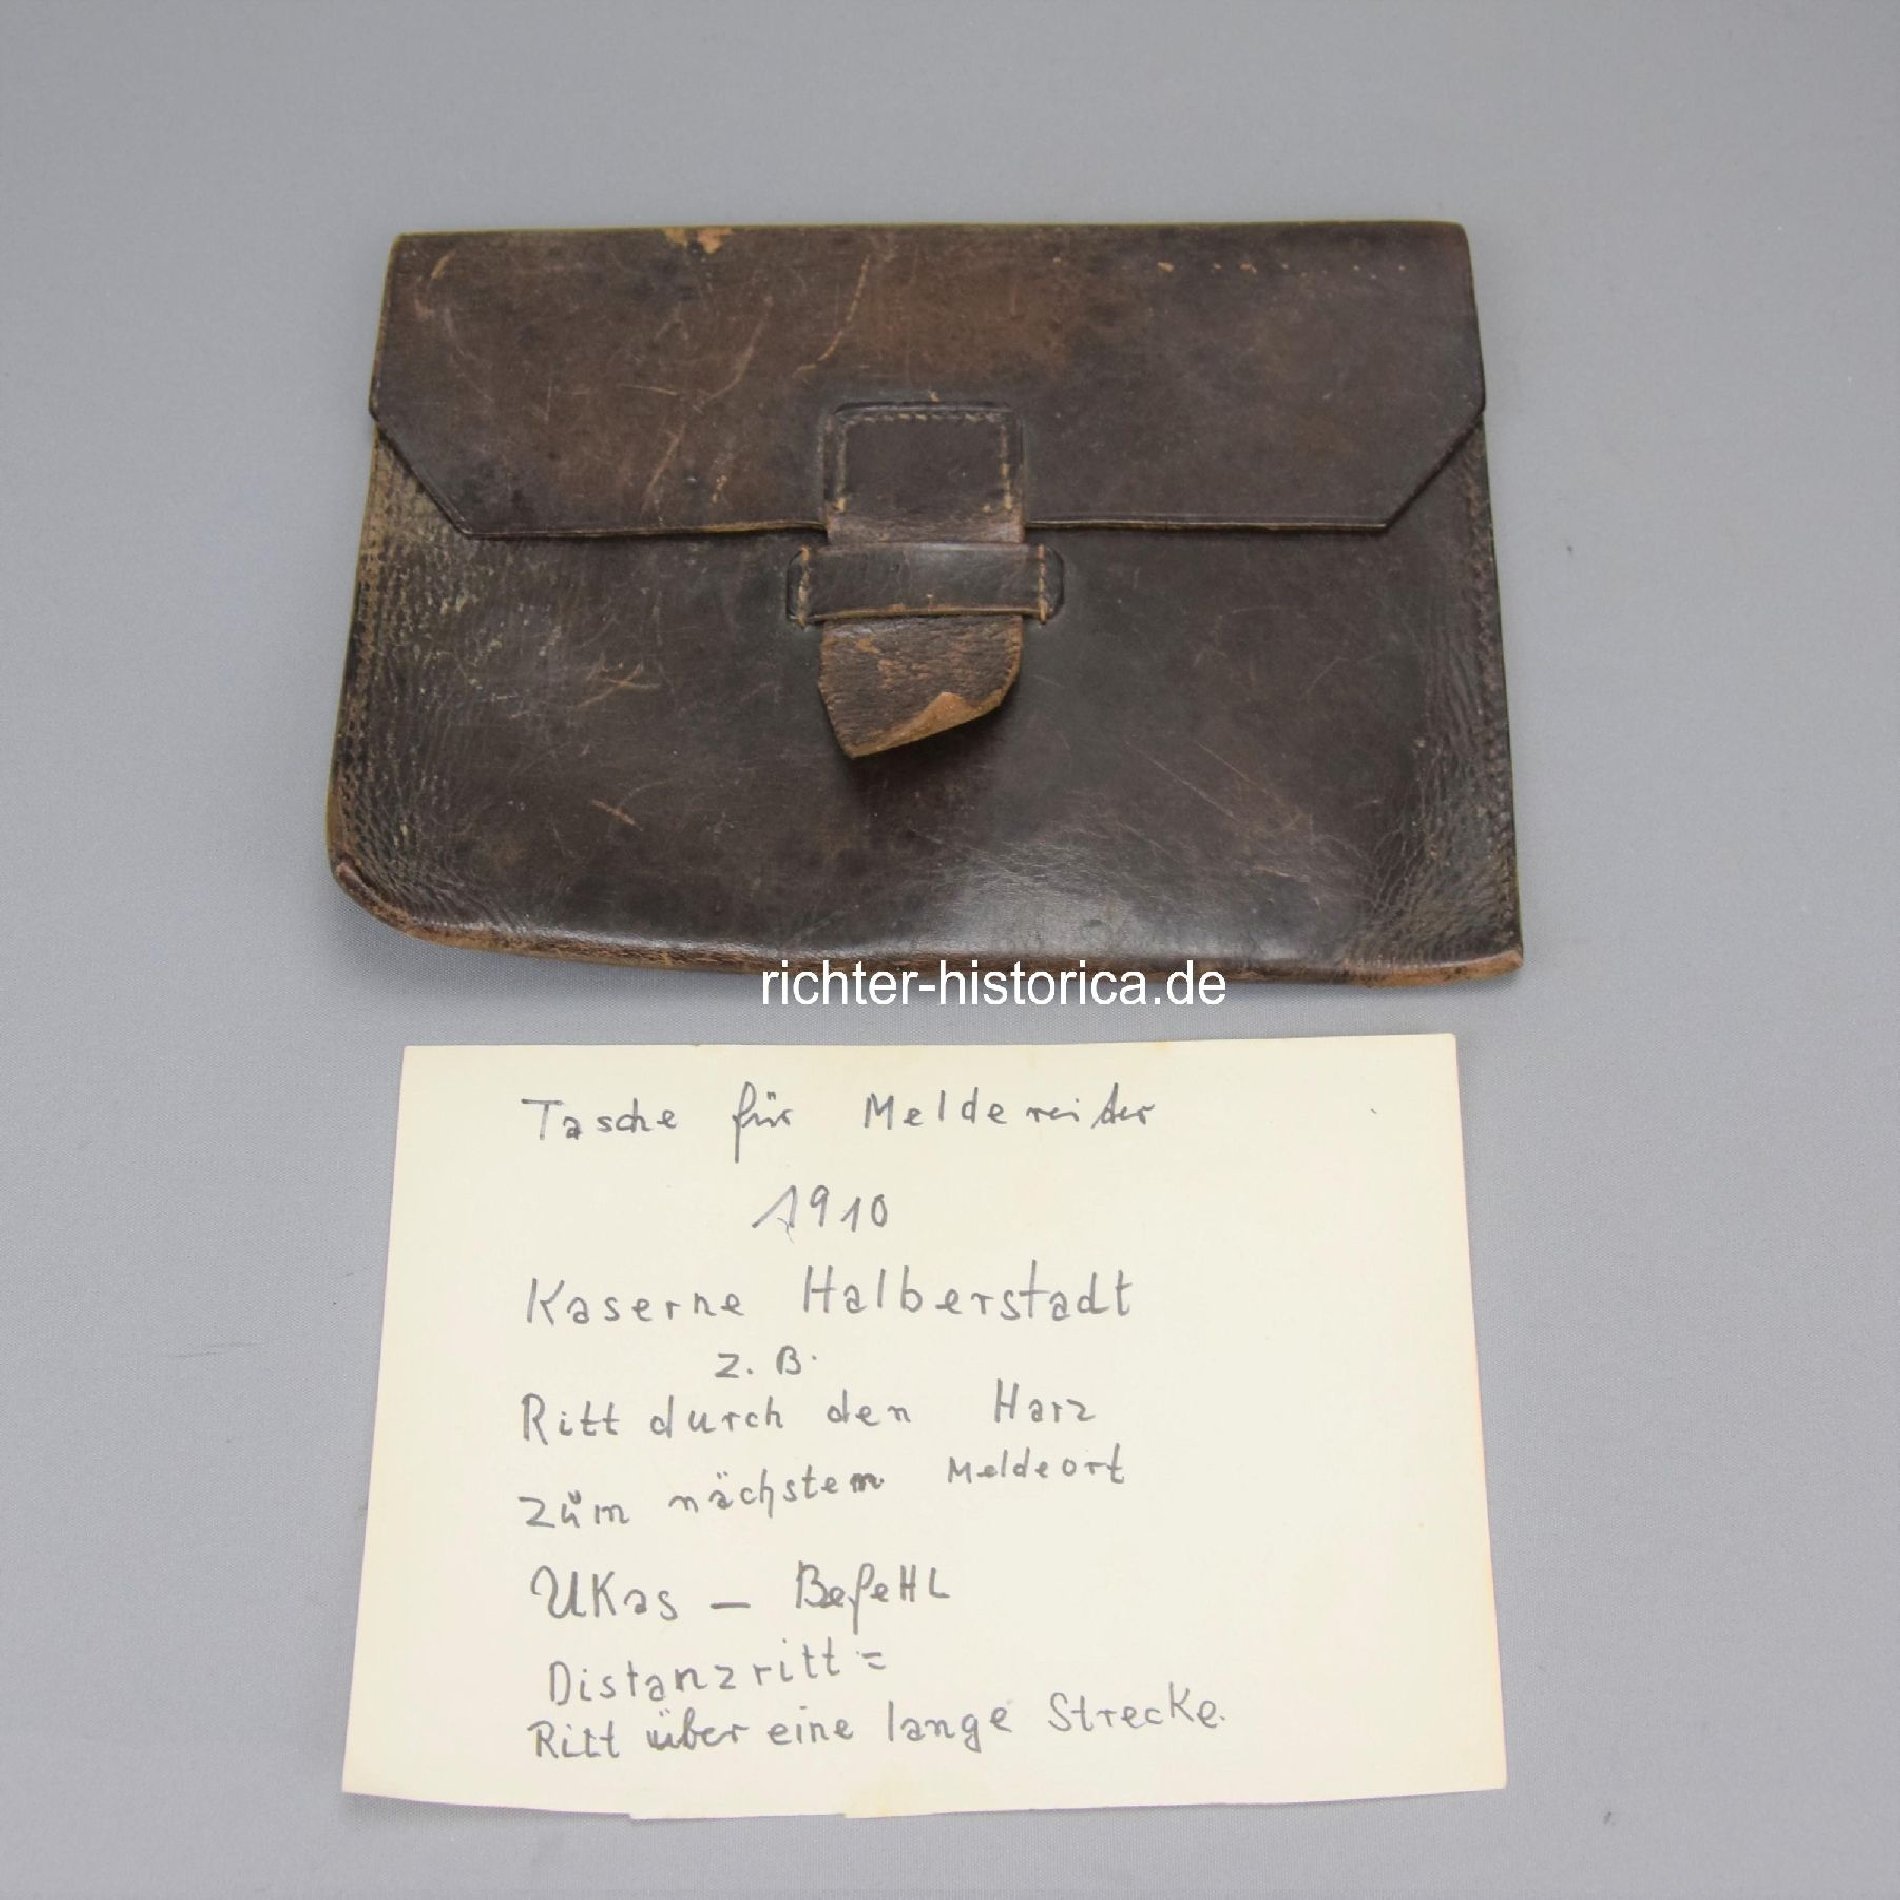 richter-historica.de
Tasche für Meldereiter
1910
Kaserne Halberstadt
z. B.
Ritt durch den Harz
zŭm nächstem Meldeort
UKas – BefeHL
Distanzritt =
Ritt über eine lange Strecke.